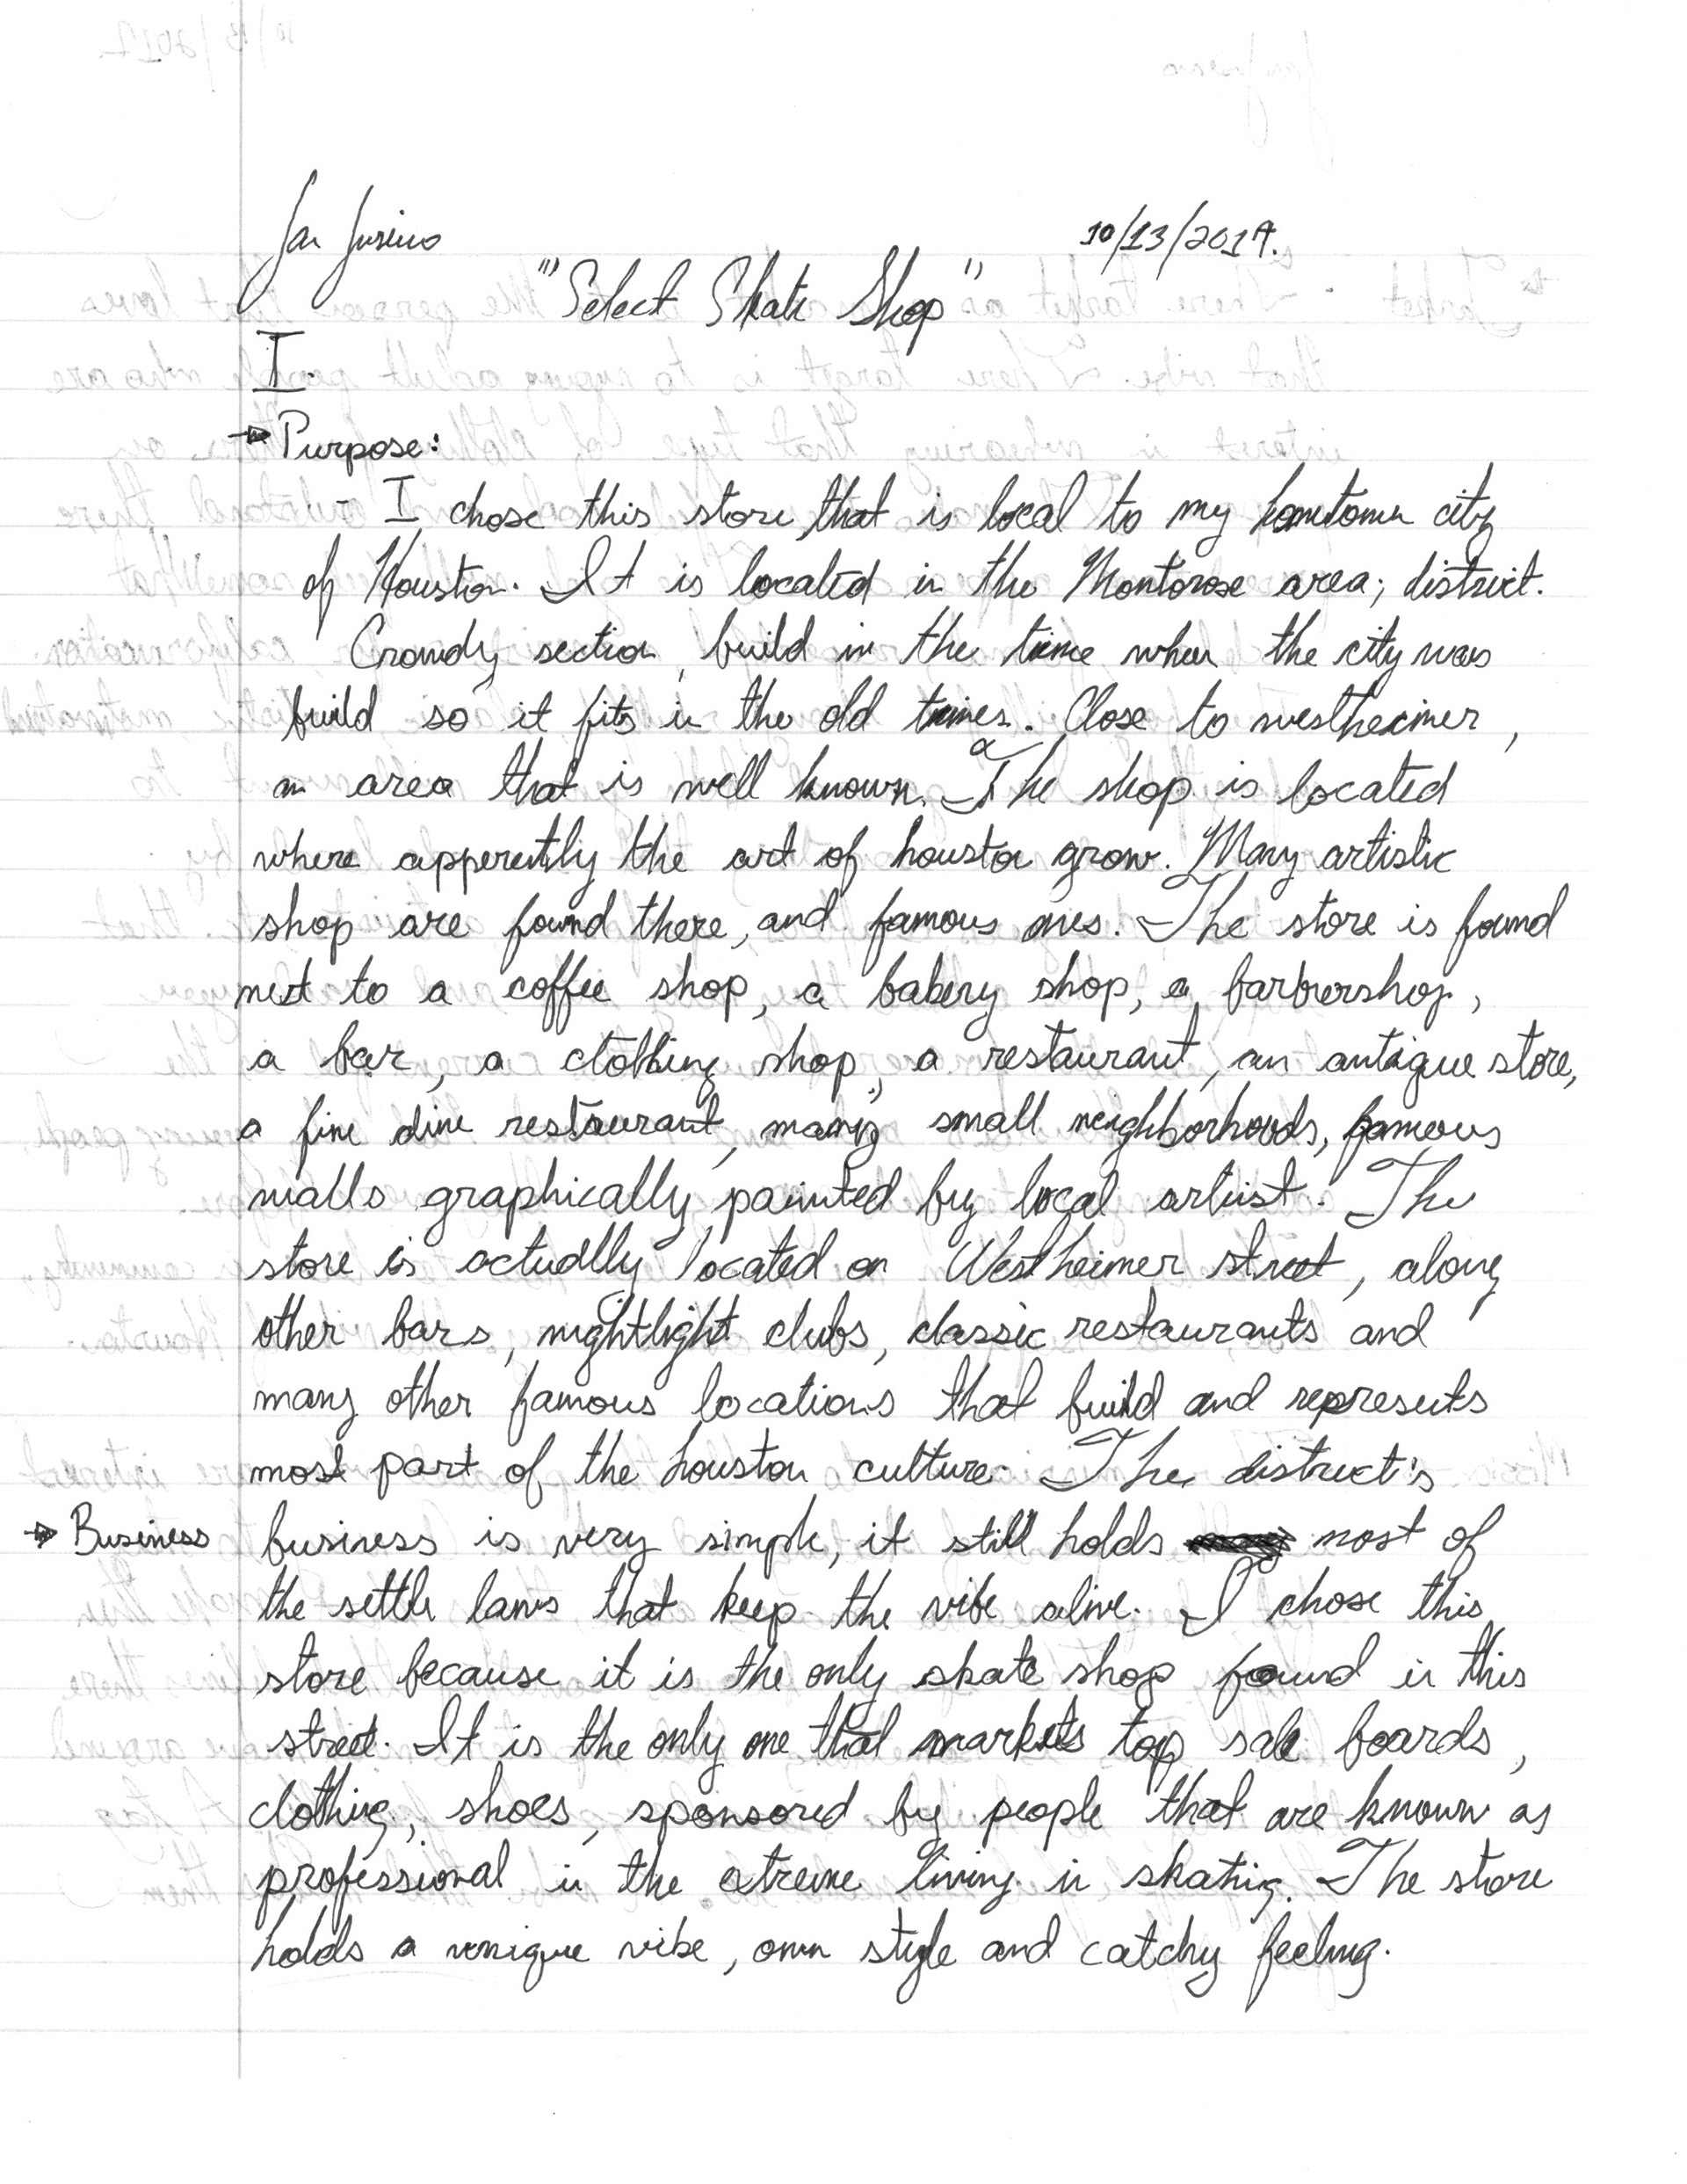 Jan Jusino 10/13/2017.
"Select Skate Shop"
I.
→ Purpose:
- I chose this store that is local to my hometown city
of Houston. It is located in the Montorose area; district.
Crowdy section, build in the time when the city was
build so it fits in the old times. Close to westheimer,
an area that is well known. The shop is located
where apperently the art of houston grow. Many artistic
shop are found there, and famous ones. The store is found
next to a coffee shop, a bakery shop, a barbershop,
a bar, a clothing shop, a restaurant, an antique store,
a fine dine restaurant, many small neighborhoods, famous
walls graphically painted by local artist. The
store is actually located on Westheimer street, along
other bars, nightlight clubs, classic restaurants and
many other famous locations that build and represents
most part of the houston culture. The district's
→ Business business is very simple, it still holds most of
the settle laws that keep the vibe alive. I chose this
store because it is the only skate shop found in this
street. It is the only one that markets top sale boards,
clothing, shoes, sponsored by people that are known as
professional in the extreme living in skating. The store
holds a unique vibe, own style and catchy feeling.